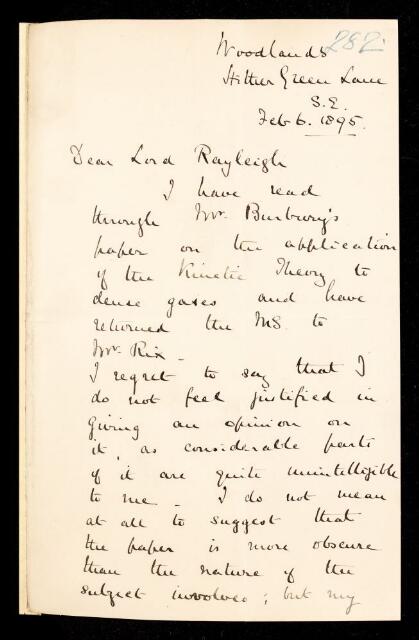 282.
Woodlands
Hither Green Lane
S.E.
Feb 6. 1895.
Dear Lord Rayleigh
I have read
through Mr. Burbury's
paper on the application
of the Kinetic Theory to
dense gases and have
returned the MS. to
Mr. Rix -
I regret to say that I
do not feel justified in
giving an opinion on
it, as considerable parts
of it are quite unintelligible
to me - I do not mean
at all to suggest that
the paper is more obscure
than the nature of the
subject involves; but my